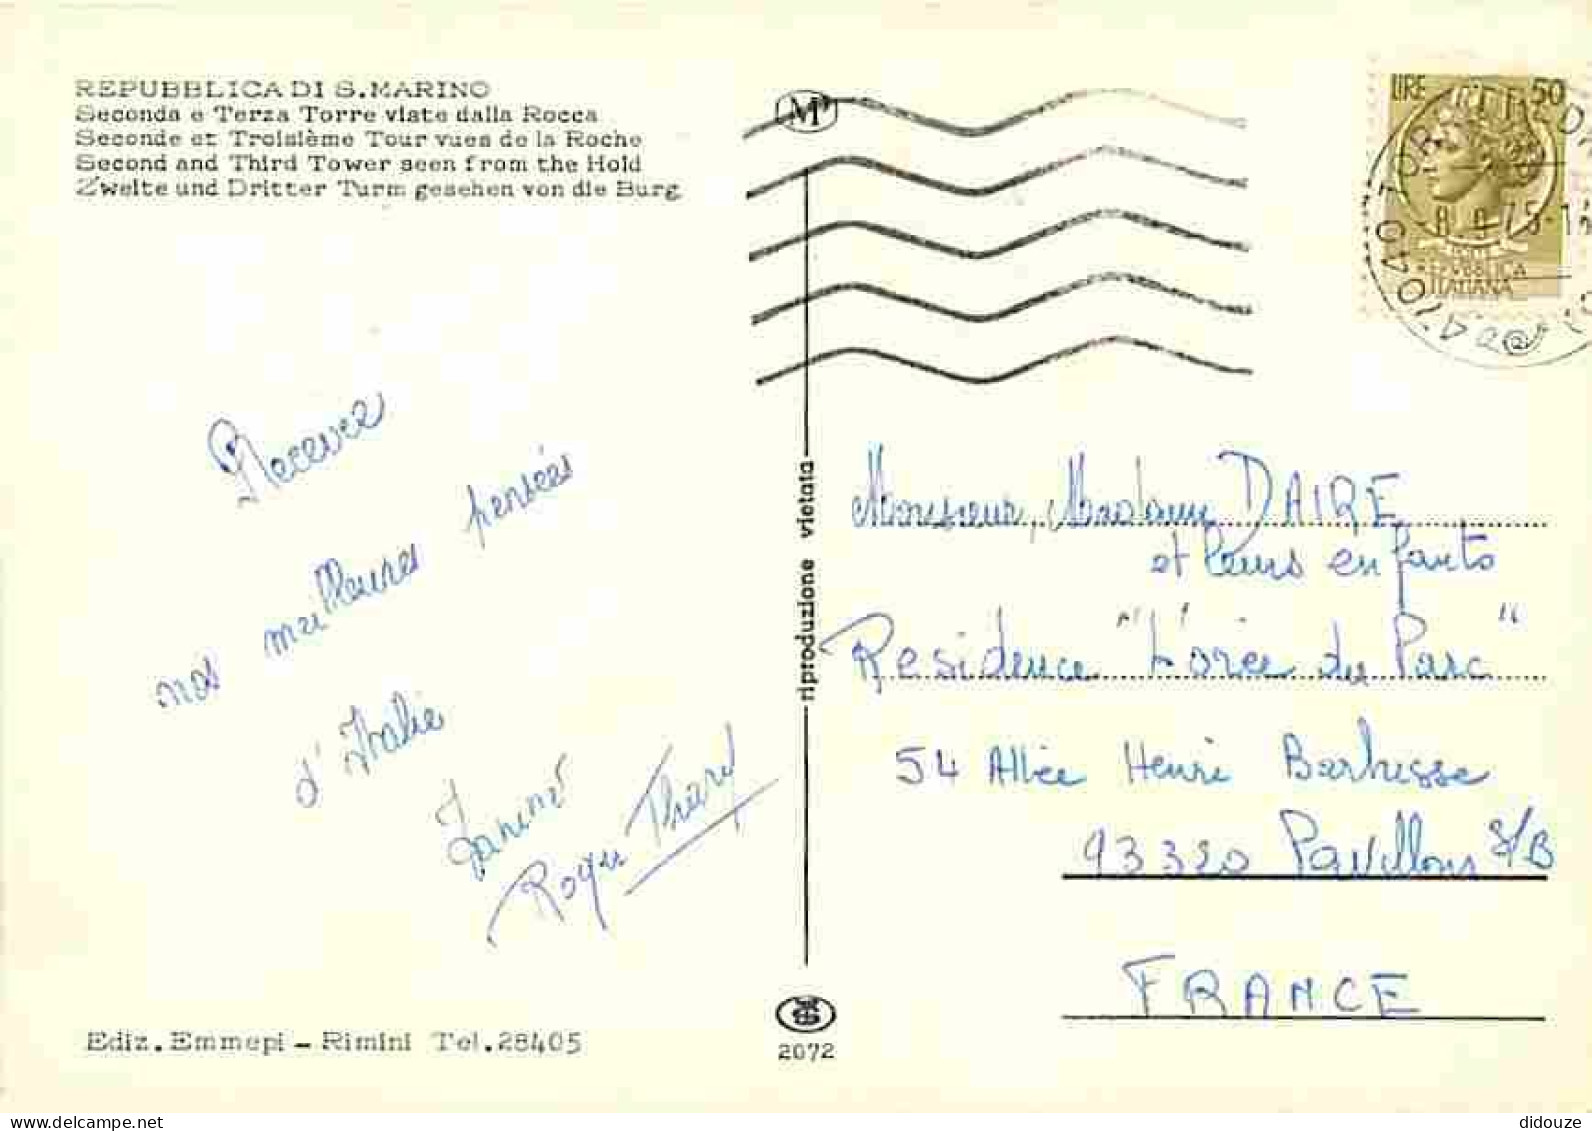 REPUBBLICA DI S. MARINO
Seconda e Terza Torre viste dalla Rocca
Seconde et Troisième Tour vues de la Roche
Second and Third Tower seen from the Hold
Zweite und Dritter Turm gesehen von die Burg
M
LIRE 50
-8 9 75-1
REPUBBLICA
ITALIANA
Recevez
nos meilleures pensées
d'Italie
Janine
Roger Thiard
riproduzione vietata
Monsieur, Madame DAIRE
et leurs enfants
Residence "L'orée du Parc"
54 Allée Henri Barbusse
93320 Pavillons S/B
FRANCE
Ediz. Emmepi - Rimini Tel. 28405
2072
delcampe.net
didouze